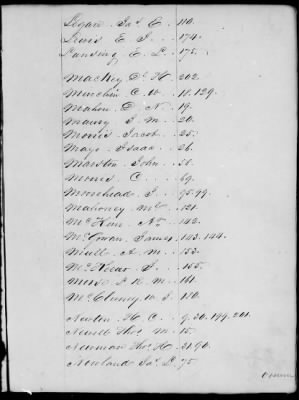 Legan Jas. E. 110.
Lewis E. J. 174.
Lansing E. L. 175.
Mackey Dr. H. 202.
Minchin C. W. 11. 129.
Mahon D. N. 19.
Maury J. M. 20.
Morris Jacob. 25.
Mayo Isaac. 26.
Marston John. 50.
Morris C. 69.
Moorehead J. 95.99.
Mahoney 121.
142.
McGowan James. 143. 144.
Mull A. M. 153.
155.
Muse 161.
McCluney W. J. 180.
Newton H. C. 9. 20. 199. 201.
Newell Thos. M. 15.
Newman Thos. H. 21.90.
Newland Jas. L. 75.